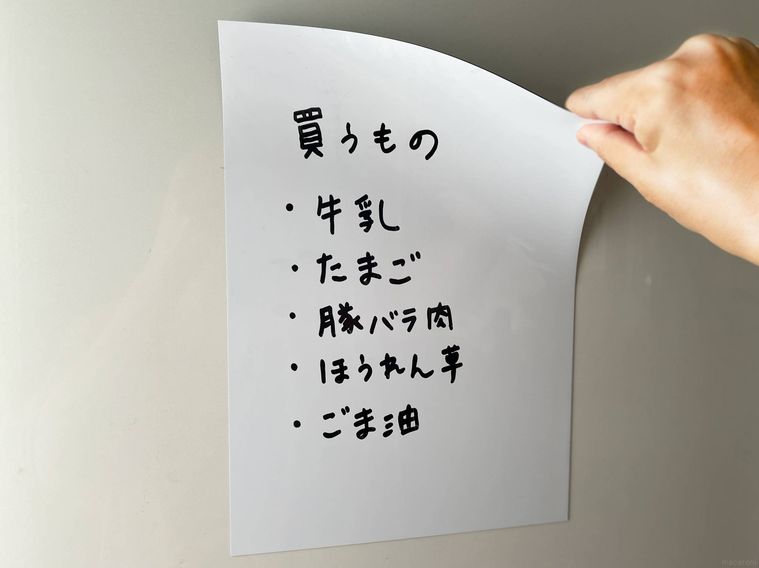 買うもの
・牛乳
・たまご
・豚バラ肉
・ほうれん草
・ごま油
macaroni